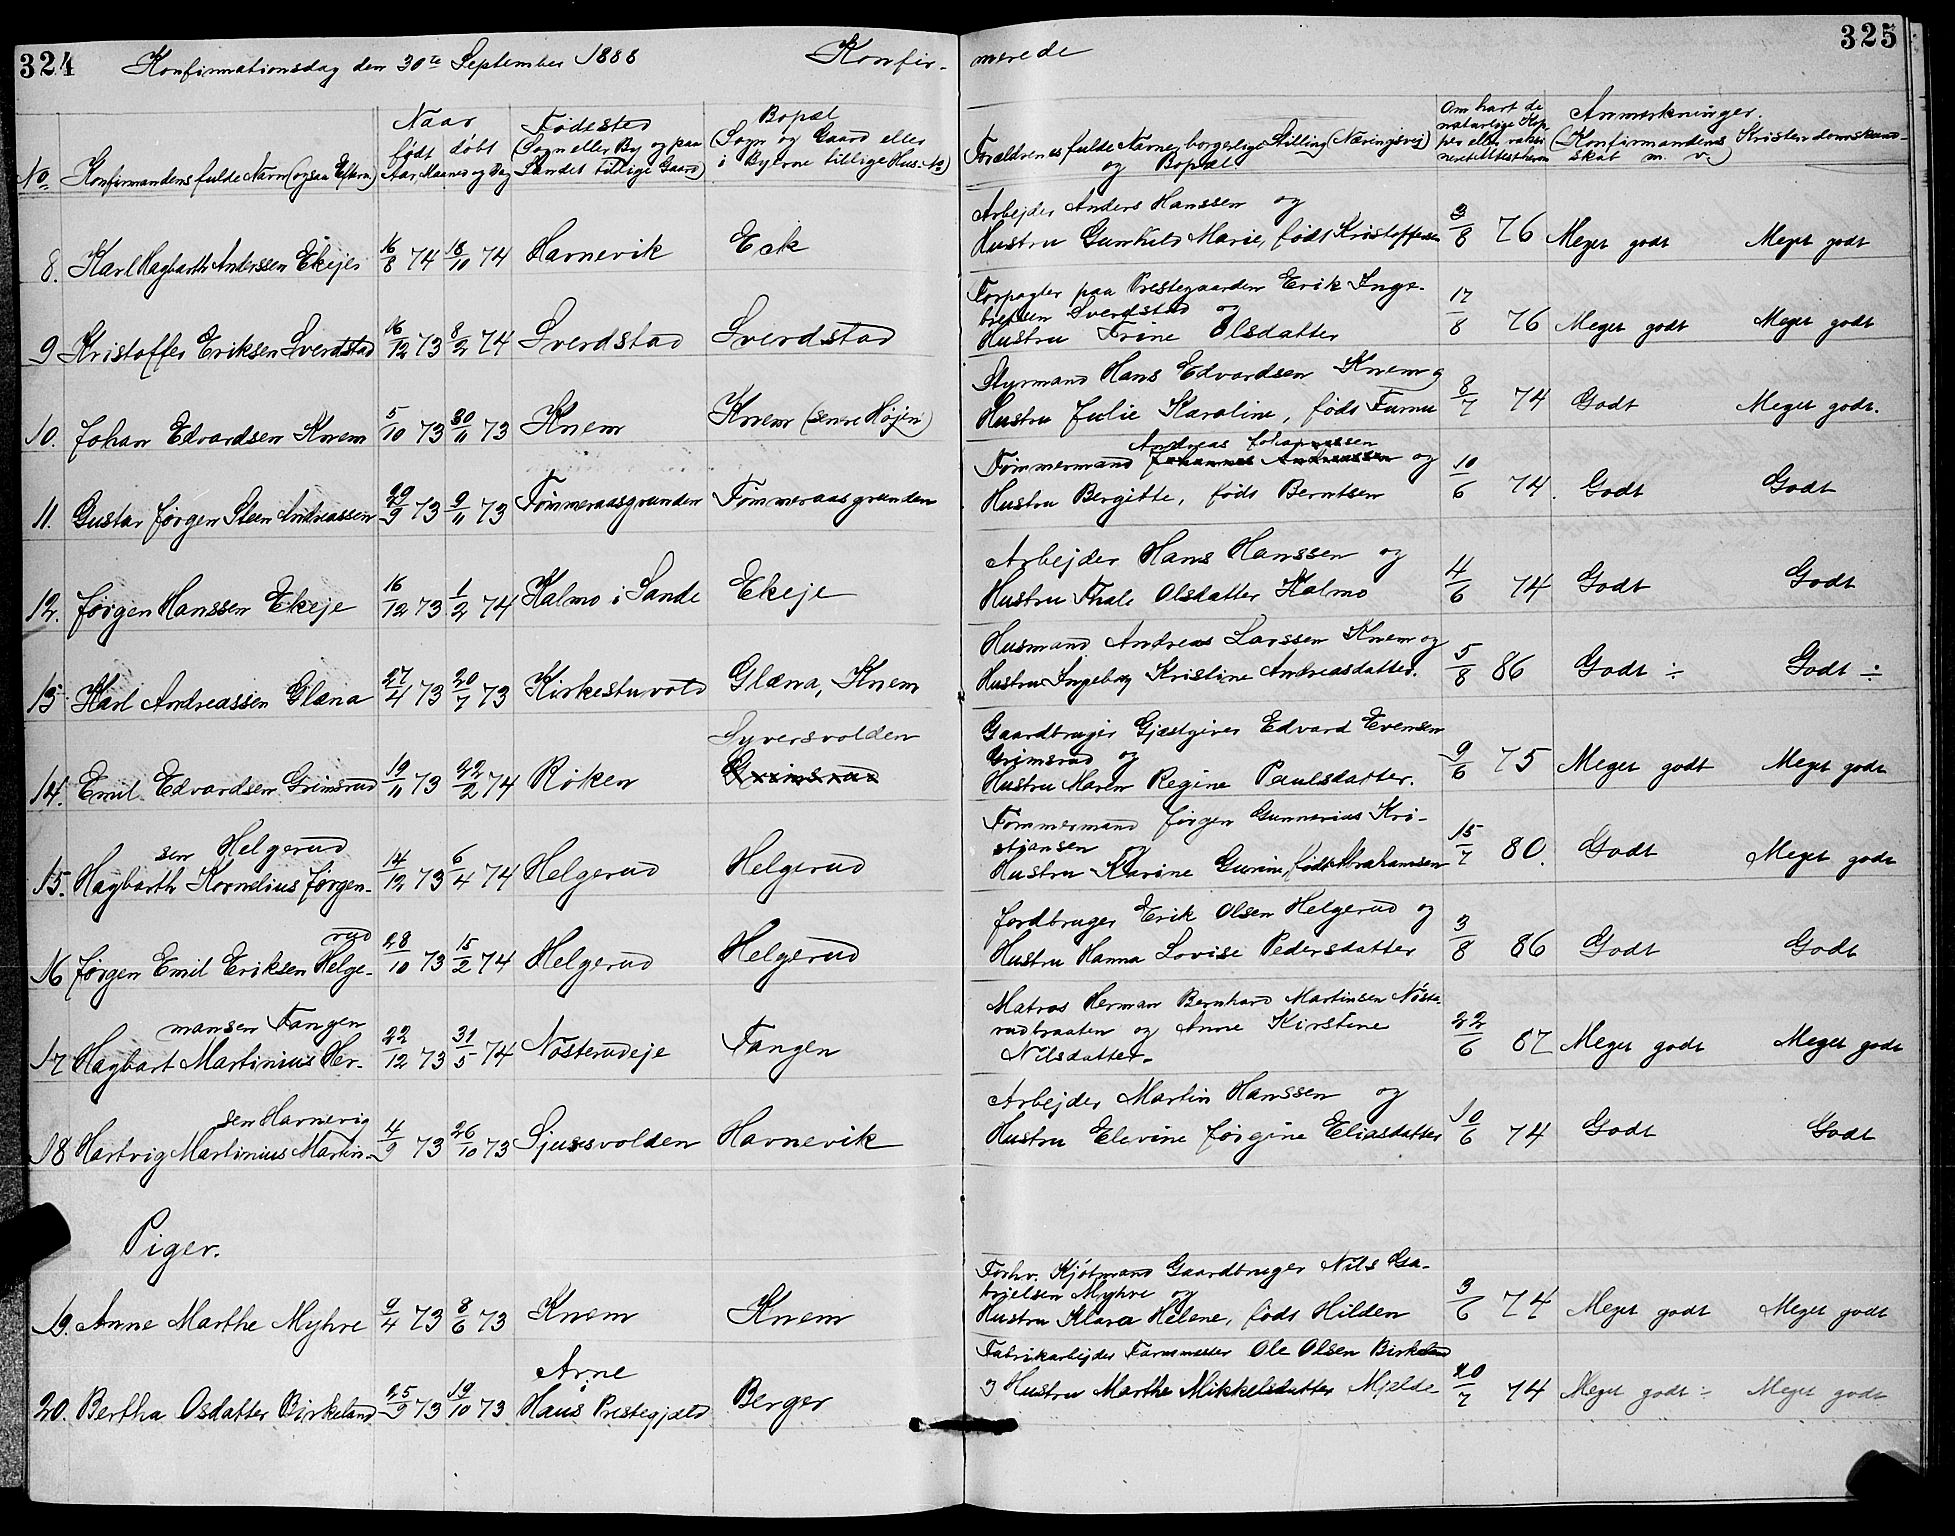 324 Konfirmationsdag den 30te September 1888 Konfir-
merede 325
No
Konfirmandens fulde Navn (ogsaa Eftern.)
Naar
født døbt
Aar, Maaned og Dag
Fødested
(Sogn eller By og paa
Landet tillige Gaard)
Bopæl
(Sogn og Gaard eller
i Byerne tillige Hus-No)
Forældrenes fulde Navne, borgerlige Stilling (Næringsvej)
og Bopæl.
Om havt de
naturlige Kop-
per eller vakci-
neret
Anmerkninger.
(Konfirmandens Kristendomskund-
skab m. v.)
8. Karl Hagbarth Anderssen Ekeje 16/8 74 18/10 74 Havnevik Eek
Arbejder Anders Hanssen og
Hustru Gunhild Marie, født Kristoffersen 3/8 76 Meget godt Meget godt
9 Kristoffer Eriksen Sverdstad 16/12 73 8/2 74 Sverdstad Sverdstad
Forpagter paa Prestegaarden Erik Inge-
bretsen Sverdstad og
Hustru Trine Olsdatter 17/8 76 Meget godt Meget godt
10. Johan Edvardsen Knem 5/10 73 30/11 73 Knem Knem (senere Højen)
Styrmand Hans Edvardsen Knem og
Hustru Julie Karoline, født Furnu 8/7 74 Godt Meget godt.
11. Gustav Jørgen Steen Andreassen 29/9 73 9/11 73 Tømmeraasgrunden Tømmeraasgrunden
Andreas Johannessen
Tømmermand Johannes Andreassen og
Hustru Bergitte, født Berntsen 10/6 74. Godt Godt
12. Jørgen Hanssen Ekeje 16/12 73 1/2 74 Kalmo i Sande Ekeje
Arbejder Hans Hanssen og
Hustru Thale Olsdatter Kalmo 4/6 74 Godt Godt
13 Karl Andreassen Glæna 27/4 73 20/7 73 Kirkestuvold Glæna, Knem
Husmand Andreas Larssen Knem og
Hustru Ingeborg Kristine Andreasdatter. 5/8 86 Godt ÷ Godt ÷
14. Emil Edvardsen Grimsrud 19/11 73 22/2 74 Røken Syversvolden
Grimsrud
Gaardbruger Gjæstgiver Edvard Evensen
Grimsrud og
Hustru Maren Regine Paulsdatter. 9/6 75 Meget godt Meget godt
sen Helgerud
15. Hagbarth Kornelius Jørgen- 14/12 73 6/4 74 Helgerud Helgerud
Tømmermand Jørgen Gunnerius Kri-
stjansen og
Hustru Karine Gurine, født Abrahamsen 15/7 80. Godt Meget godt
rud
16 Jørgen Emil Eriksen Helge- 28/10 73 15/2 74 Helgerud Helgerud
Jordbruger Erik Olsen Helgerud og
Hustru Hanna Lovise Pedersdatter 3/8 86 Godt Godt
mansen Tangen
17 Hagbart Martinius Her- 22/12 73 31/5 74 Nøsterudeje Tangen
Matros Herman Bernhard Martinsen Nøste-
rudbraaten og Anne Kirstine
Nilsdatter. 22/6 87 Meget godt Meget godt
sen Havnevig
18 Hartvig Martinius Martin- 4/9 73 26/10 73 Sjursvolden Havnevik
Arbejder Martin Hanssen og
Hustru Elevine Jørgine Eliasdatter 10/6 74 Godt Godt
Piger.
19. Anne Marthe Myhre 9/4 73 8/6 73 Knem Knem
Forhv. Kjøbmand Gaardbruger Nils Ga-
brielsen Myhre og
Hustru Klara Helene, født Hilden 3/6 74 Meget godt Meget godt
20. Bertha Osdatter Birkeland 25/9 73 19/10 73 Arne
i
Haus Prestegjæld Berger
Fabrikarbejder Farvemester Ole Olsen Birkeland
og Hustru Marthe Mikkelsdatter Mjelde 20/7 74 Meget godt ÷ Meget godt